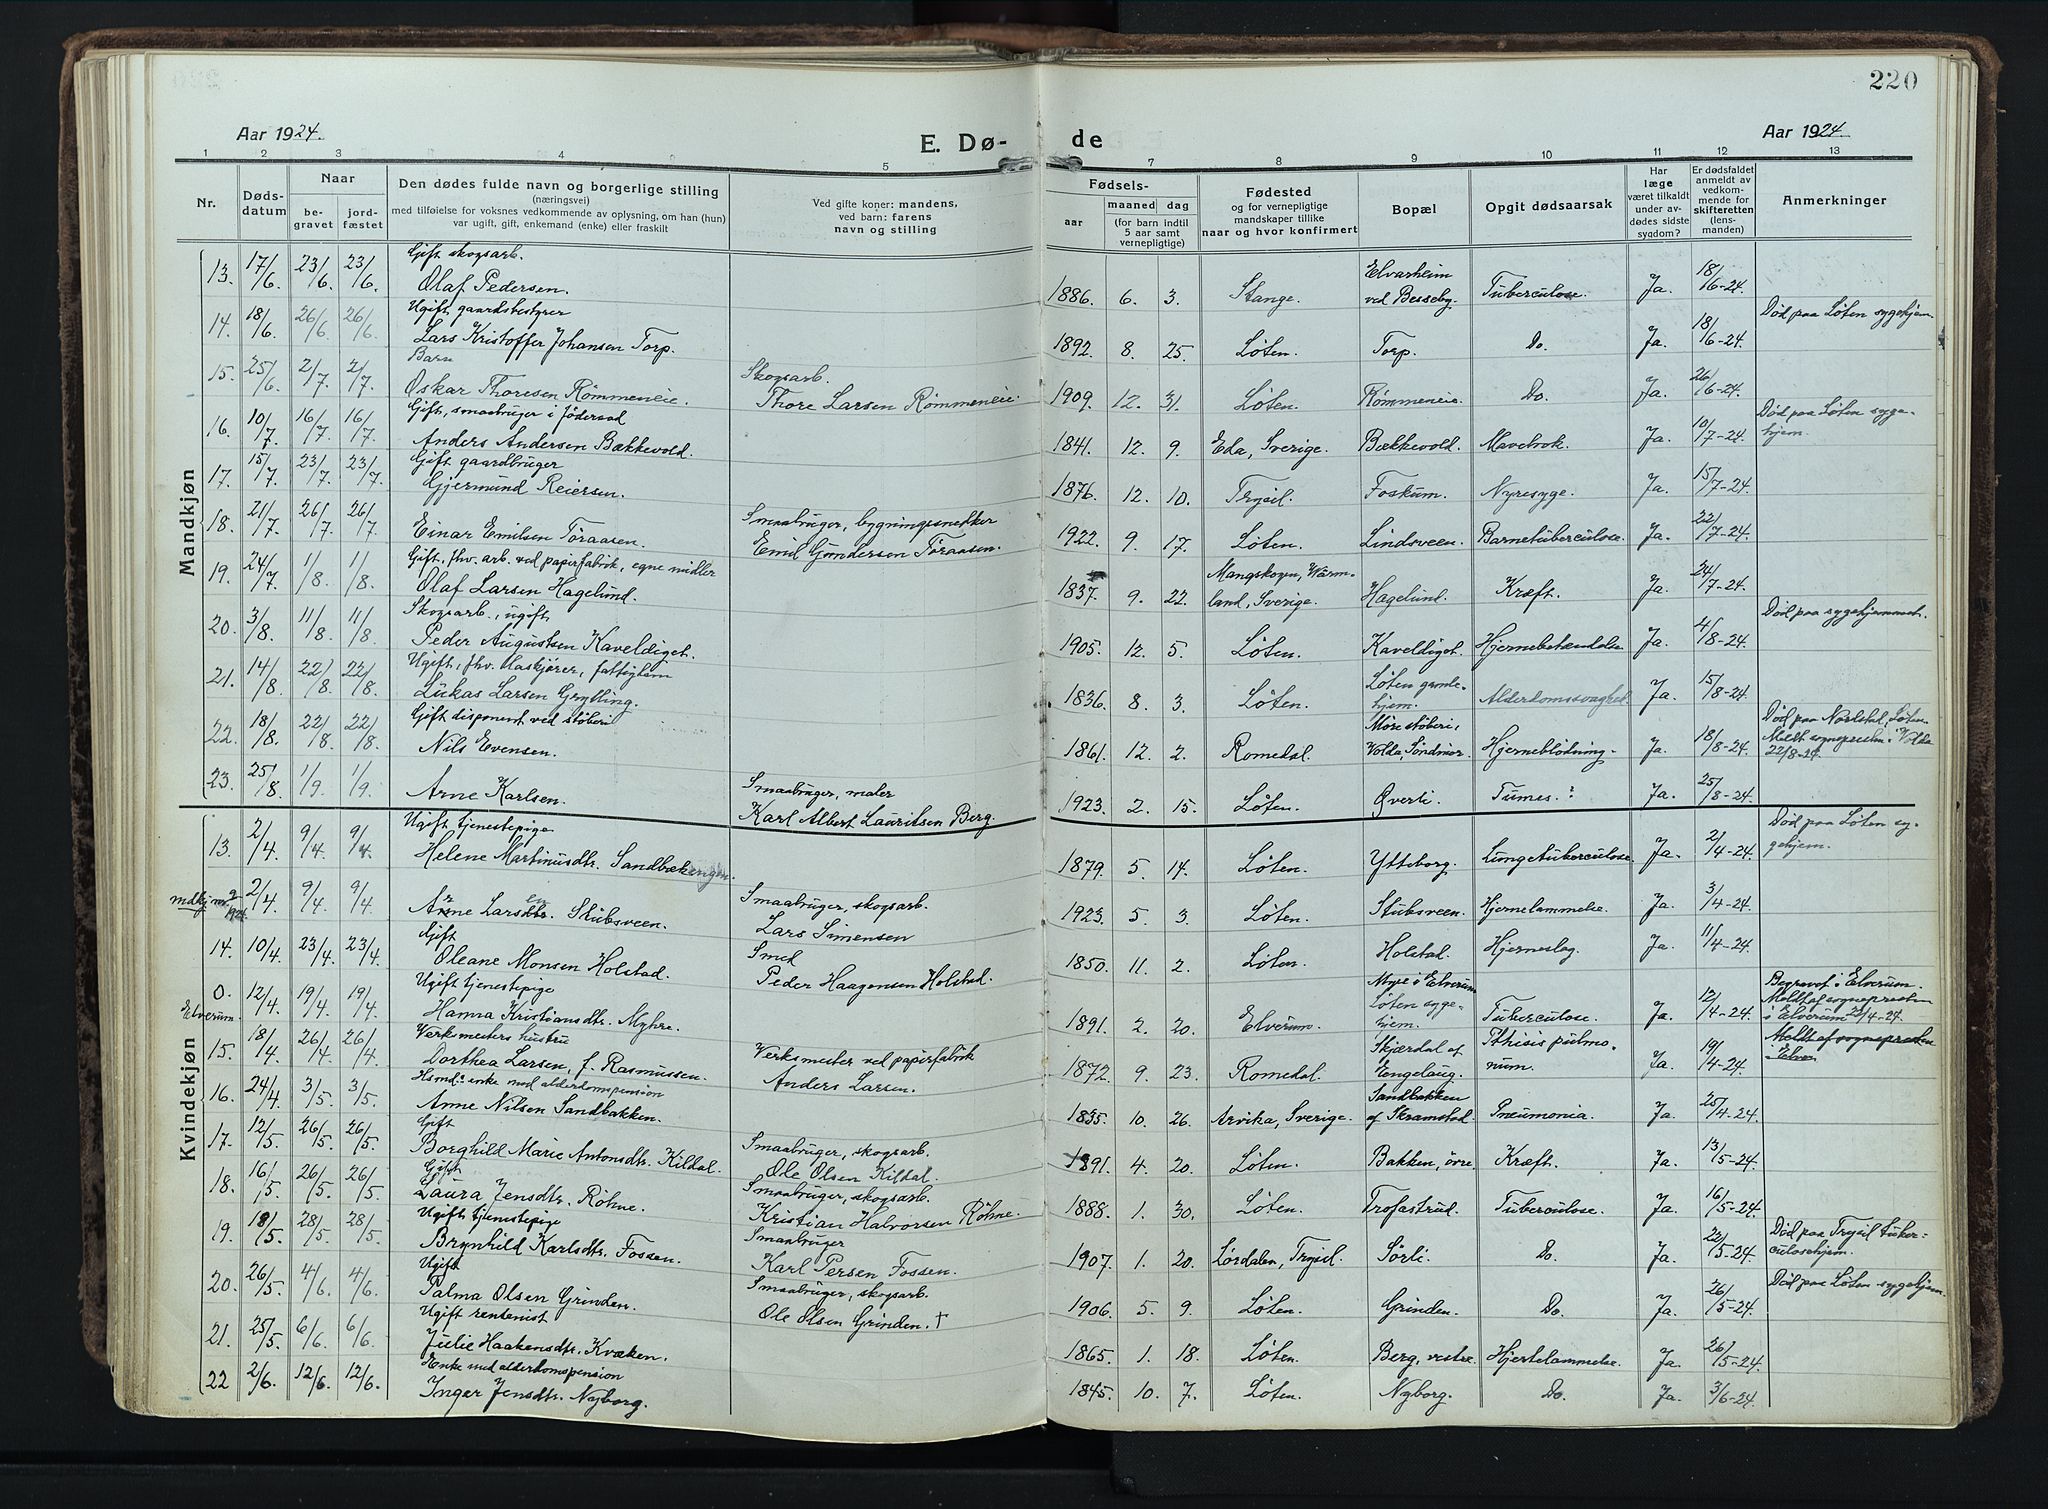 220
Aar 1924.
E. Dø-
de
Aar 1924.
1 2 3 4 5 7 8 9 10 11 12 13
Nr.
Døds-
datum
Naar
be-
gravet
jord-
fæstet
Den dødes fulde navn og borgerlige stilling
(næringsvei)
med tilføielse for voksnes vedkommende av oplysning, om han (hun)
var ugift, gift, enkemand (enke) eller fraskilt
Ved gifte koner: mandens,
ved barn: farens
navn og stilling
Fødsels-
aar
maaned dag
(for barn indtil
5 aar samt
vernepligtige)
Fødested
og for vernepligtige
mandskaper tillike
naar og hvor konfirmert
Bopæl
Opgit dødsaarsak
Har
læge
været tilkaldt
under av-
dødes sidste
sygdom?
Er dødsfaldet
anmeldt av
vedkom-
mende for
skifteretten
(lens-
manden)
Anmerkninger
Mandkjøn
13. 17/6. 23/6. 23/6. Gift skogsarb.
Olaf Pedersen. 1886. 6. 3. Stange. Elvarheim
ved Besseby. Tuberculose. Ja. 18/6-24.
14. 18/6. 26/6 26/6. Ugift gaardsbestyrer
Lars Kristoffer Johansen Torp. 1892. 8. 25. Løten. Torp. Do. Ja. 18/6-24. Død paa Løten sygehjem.
15. 25/6 2/7. 2/7. Barn
Oskar Thoresen Rømmeneie. Skogsarb.
Thore Larsen Rømmeneie. 1909. 12. 31. Løten. Rømmeneie. Do. Ja. 26/6-24.
16. 10/7. 16/7. 16/7. Gift, smaabruger i Jødersad
Anders Andersen Bækkevold. 1841. 12. 9. Eda, Sverige. Bækkevold. Mavebrok. Ja. 10/7-24. Død paa Løten syge-
hjem.
17. 15/7. 23/7. 23/7. Gift gaardbruger
Gjermund Reiersen. 1876. 12. 10. Trysil. Foskum. Nyresyge. Ja. 15/7-24.
18. 21/7. 26/7. 26/7. Einar Emilsen Tøraasen. Smaabruger, bygningssnekker
Emil Gundersen Tøraasen. 1922. 9. 17. Løten. Lindsveen. Barnetuberculose. Ja. 22/7-24.
19. 24/7. 1/8. 1/8. Gift, fhv. arb. ved papirfabrik, egne midler
Olaf Larsen Hagelund. 1837. 9. 22. Mangskogn, Wärm-
land, Sverige. Hagelund. Kræft. Ja. 24/7-24.
20. 3/8. 11/8. 11/8. Skogsarb., ugift
Peder Augustsen Kaveldiget. 1905. 12. 5. Løten. Kaveldiget. Hjernebetændelse. Ja. 4/8-24. Død paa sygehjemmet.
21. 14/8. 22/8. 22/8. Ugift, fhv. laskjører, fattiglem
Lukas Larsen Grylling. 1836. 8. 3. Løten. Løten gamle-
hjem. Alderdomssvaghed. Ja. 15/8-24.
22. 18/8. 22/8. 22/8. Gift disponent ved støberi
Nils Evensen. 1861. 12. 2. Romedal. Møre støberi,
Volda, Søndmør. Hjerneblødning. Ja. 18/8-24. Død paa Norstad, Løten.
Meldt sognepresten i Volda
22/8-24.
23. 25/8. 1/9. 1/9. Arne Karlsen. Smaabruger, maler
Karl Albert Lauritsen Berg. 1923. 2. 15. Løten. Øverli. Tumes. ? Ja. 25/8-24.
Kvindekjøn
13. 2/4. 9/4 9/4. Ugift tjenestepige
Helene Martinusdtr. Sandbækengen. 1879. 5. 14. Løten. Ytteborg. Lungetuberculose. Ja. 2/4-24. Død paa Løten sy-
gehjem.
mdkj. nr. 9 1924 2/4. 9/4. 9/4. Arne Larsen Stubsveen. Smaabruger, skogsarb.
Lars Simensen 1923. 5 3. Løten. Stubsveen. Hjernelammelse. Ja. 3/4-24.
14. 10/4. 23/4. 23/4. Gift
Oleane Monsen Holstad. Smed
Peder Haagensen Holstad. 1850. 11. 2. Løten. Holstad. Hjerneslag. Ja. 11/4-24.
0. Elverum. 12/4. 19/4. 19/4. Ugift tjenestepige
Hanna Kristiansdtr. Myhre. 1891. 2. 20. Elverum. Myre i Elverum
Løten syge-
hjem. Tuberculose. Ja. 12/4-24. Begravet i Elverum.
Meldt af sognepresten
i Elverum 22/4-24.
15. 18/4. 26/4. 26/4. Verksmesters hustru
Dorthea Larsen, f. Rasmussen. Verksmester ved papirfabrik
Anders Larsen. 1872. 9. 23. Romedal. Skjærdal af
Engelaug. Pthisis pulmo-
num. Ja. 19/4-24. Meldt af sognepresten
Elver
16. 24/4 3/5. 3/5. Hsmd.s enke med alderdomspension
Anne Nilsen Sandbakken. 1835. 10. 26. Arvika, Sverige. Sandbakken
af Skramstad. Pneumonia. Ja. 25/4-24.
17. 12/5. 26/5. 26/5. Gift
Borghild Marie Antonsdtr. Kildal. Smaabruger, skogsarb.
Ole Olsen Kildal. 1891. 4. 20. Løten. Bakken, øvre Kræft. Ja. 13/5-24.
18. 16/5. 26/5. 26/5. Gift
Laura Jensdtr. Røhne. Smaabruger, skogsarb.
Kristian Halvorsen Røhne. 1888. 1. 30. Løten. Trofastrud. Tuberculose. Ja. 16/5-24.
19. 18/5. 28/5. 28/5. Ugift tjenestepige
Brynhild Karlsdtr. Fossen. Smaabruger
Karl Persen Fossen. 1907. 1. 20. Lørdalen, Trysil. Sörli. Do. Ja. 22/5-24. Død paa Trysil tuber-
culosehjem.
20. 26/5. 4/6. 4/6. Ugift
Palma Olsen Grinden. Smaabruger, skogsarb.
Ole Olsen Grinden. † 1906. 5. 9. Løten. Grinden. Do. Ja. 26/5-24. Død paa Løten sygehjem.
21. 25/5. 6/6. 6/6. Ugift rentenist
Julie Haakensdtr. Kvæken. 1865. 1. 18. Løten. Berg, vestre. Hjertelammelse. Ja. 26/5-24.
22 2/6. 12/6. 12/6. Enke med alderdomspension
Inger Jensdtr. Nyborg. 1845. 10. 7. Løten. Nyborg. Do. Ja. 3/6-24.